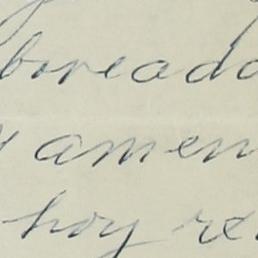 boreado
amen
hoy re